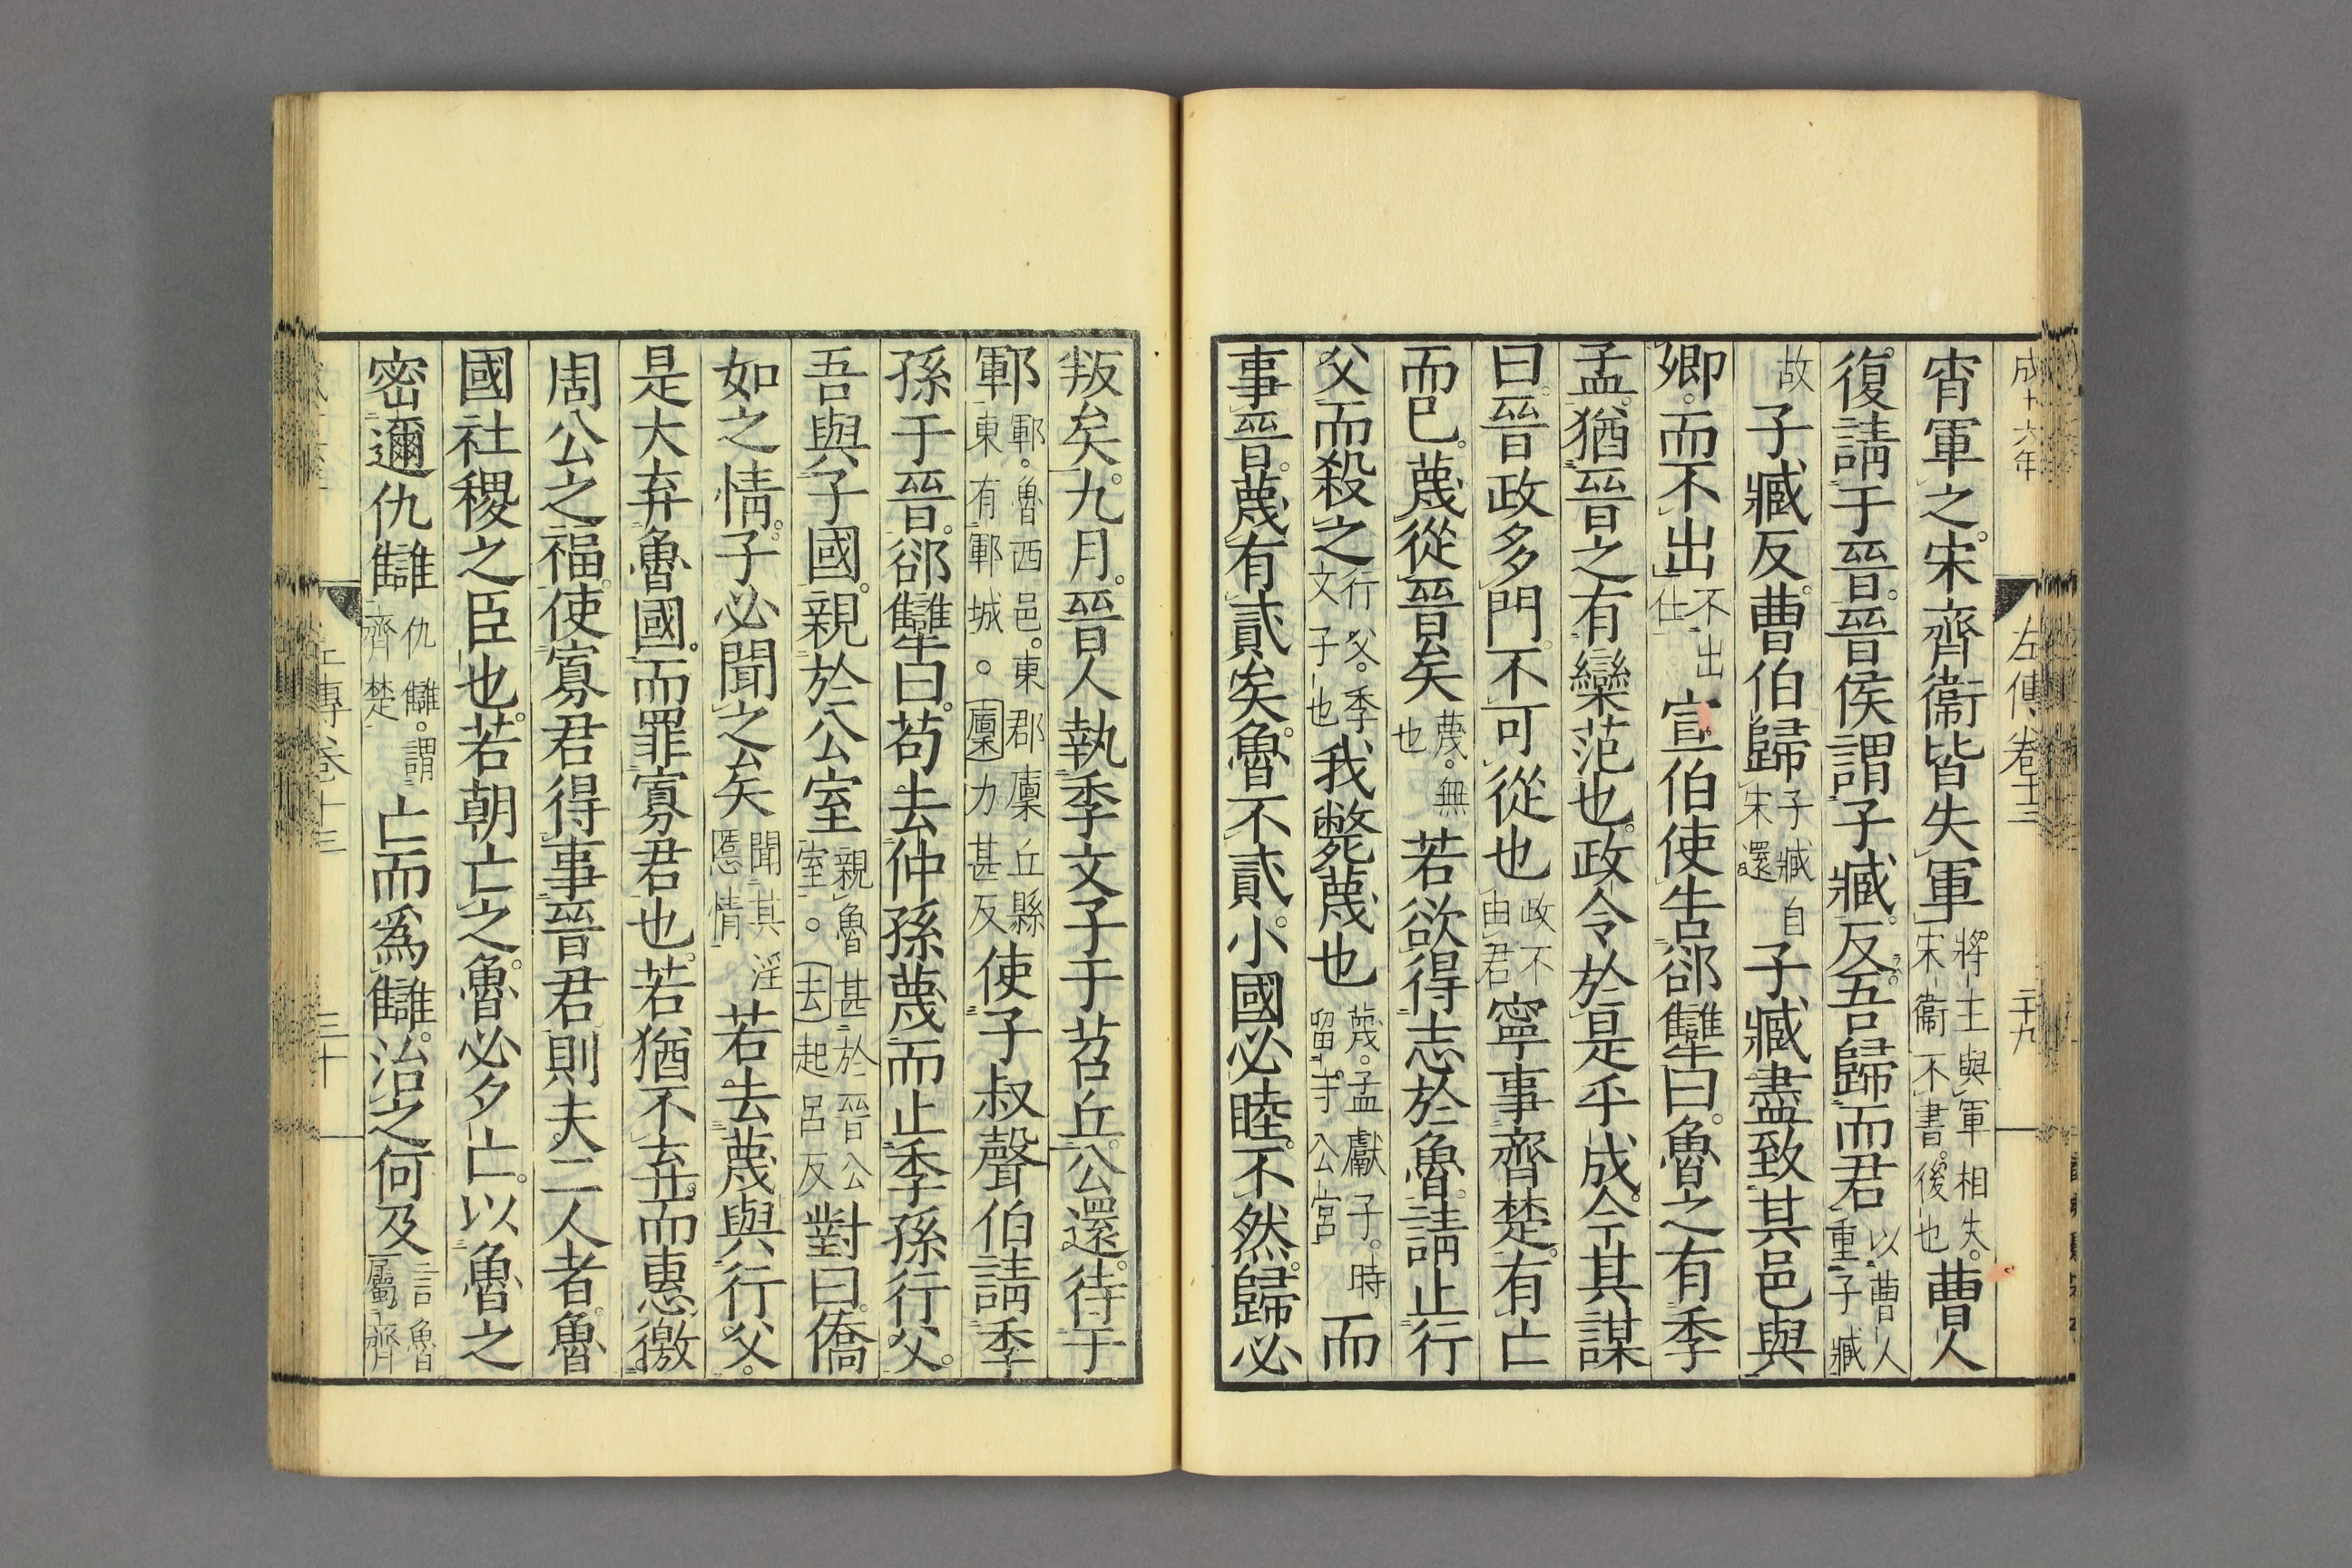 成十六年 左傳卷十三 二十九
宵軍之。宋齊衞皆失軍將主與軍相失。宋衞不書。後也曹人
復請于晉。晉侯謂子臧。反。吾歸而君以曹人重子臧
故子臧反。曹伯歸子臧自宋還子臧盡致其邑與
卿。而不出不出仕宣伯使告郤犫曰。魯之有季
孟。猶晉之有欒范也。政令於是乎成。今其謀
曰。晉政多門。不可從也政不由君寧事齊楚。有亡
而已。蔑從晉矣蔑。無也若欲得志於魯。請止行
父而殺之行父。季文子也我斃蔑也蔑。孟獻子。時留守公宮而
事晉。蔑有貳矣。魯不貳。小國必睦。不然。歸必
叛矣。九月。晉人執季文子于苕丘。公還。待于
鄆鄆。魯西邑。東郡廩丘縣東有鄆城。廩力甚反使子叔聲伯請季
孫于晉。郤犫曰。苟去仲孫蔑而止季孫行父。
吾與子國。親於公室親魯甚於晉公室。去起呂反對曰。僑
如之情。子必聞之矣聞其淫慝情若去蔑與行父。
是大弃魯國。而罪寡君也。若猶不弃。而惠徼
周公之福。使寡君得事晉君。則夫二人者。魯
國社稷之臣也。若朝亡之。魯必夕亡。以魯之
密邇仇讎仇讎。謂齊楚亡而爲讎。治之何及言魯屬齊
卷十三 三十